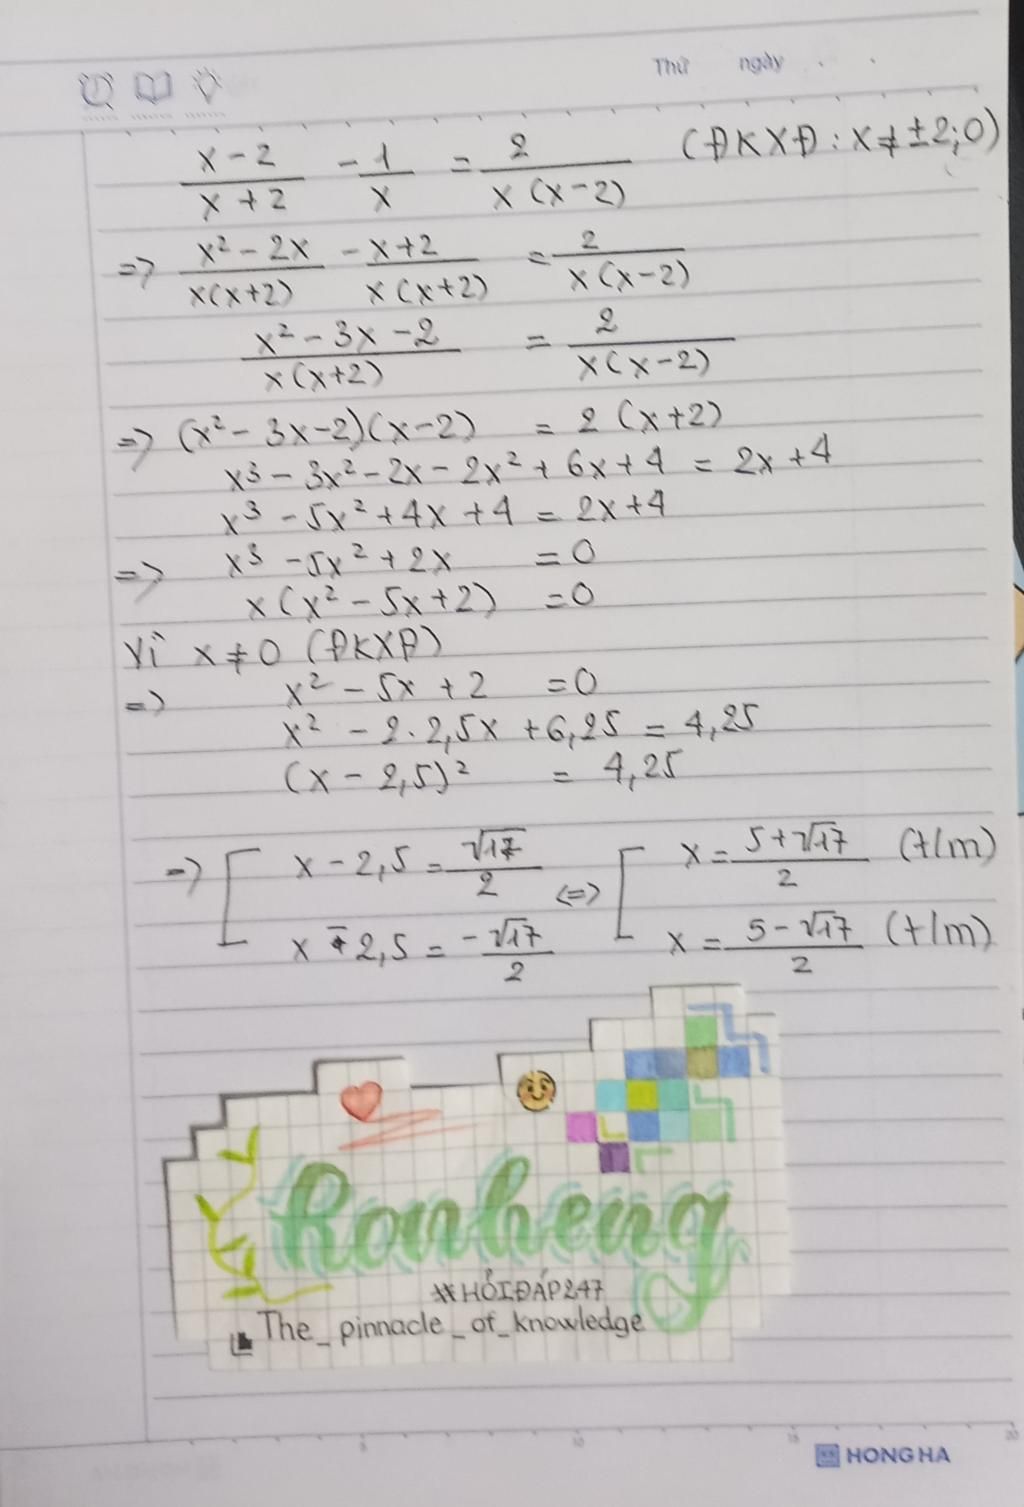 Thứ ngày
x-2/x+2 - 1/x = 2/x(x-2) (ĐKXĐ: x≠±2;0)
=> x²-2x/x(x+2) - x+2/x(x+2) = 2/x(x-2)
x²-3x-2/x(x+2) = 2/x(x-2)
=> (x²-3x-2)(x-2) = 2(x+2)
x³-3x²-2x-2x²+6x+4 = 2x+4
x³-5x²+4x+4 = 2x+4
=> x³-5x²+2x = 0
x(x²-5x+2) = 0
Vì x≠0 (ĐKXĐ)
=> x²-5x+2 = 0
x²-2.2,5x+6,25 = 4,25
(x-2,5)² = 4,25
=> [ x-2,5 = √17/2 <=> [ x = 5+√17/2 (t/m)
x-2,5 = -√17/2 x = 5-√17/2 (t/m)
Ronheng
#HỎIĐÁP247
The_pinnacle_of_knowledge
5 10 15 20
HONG HA